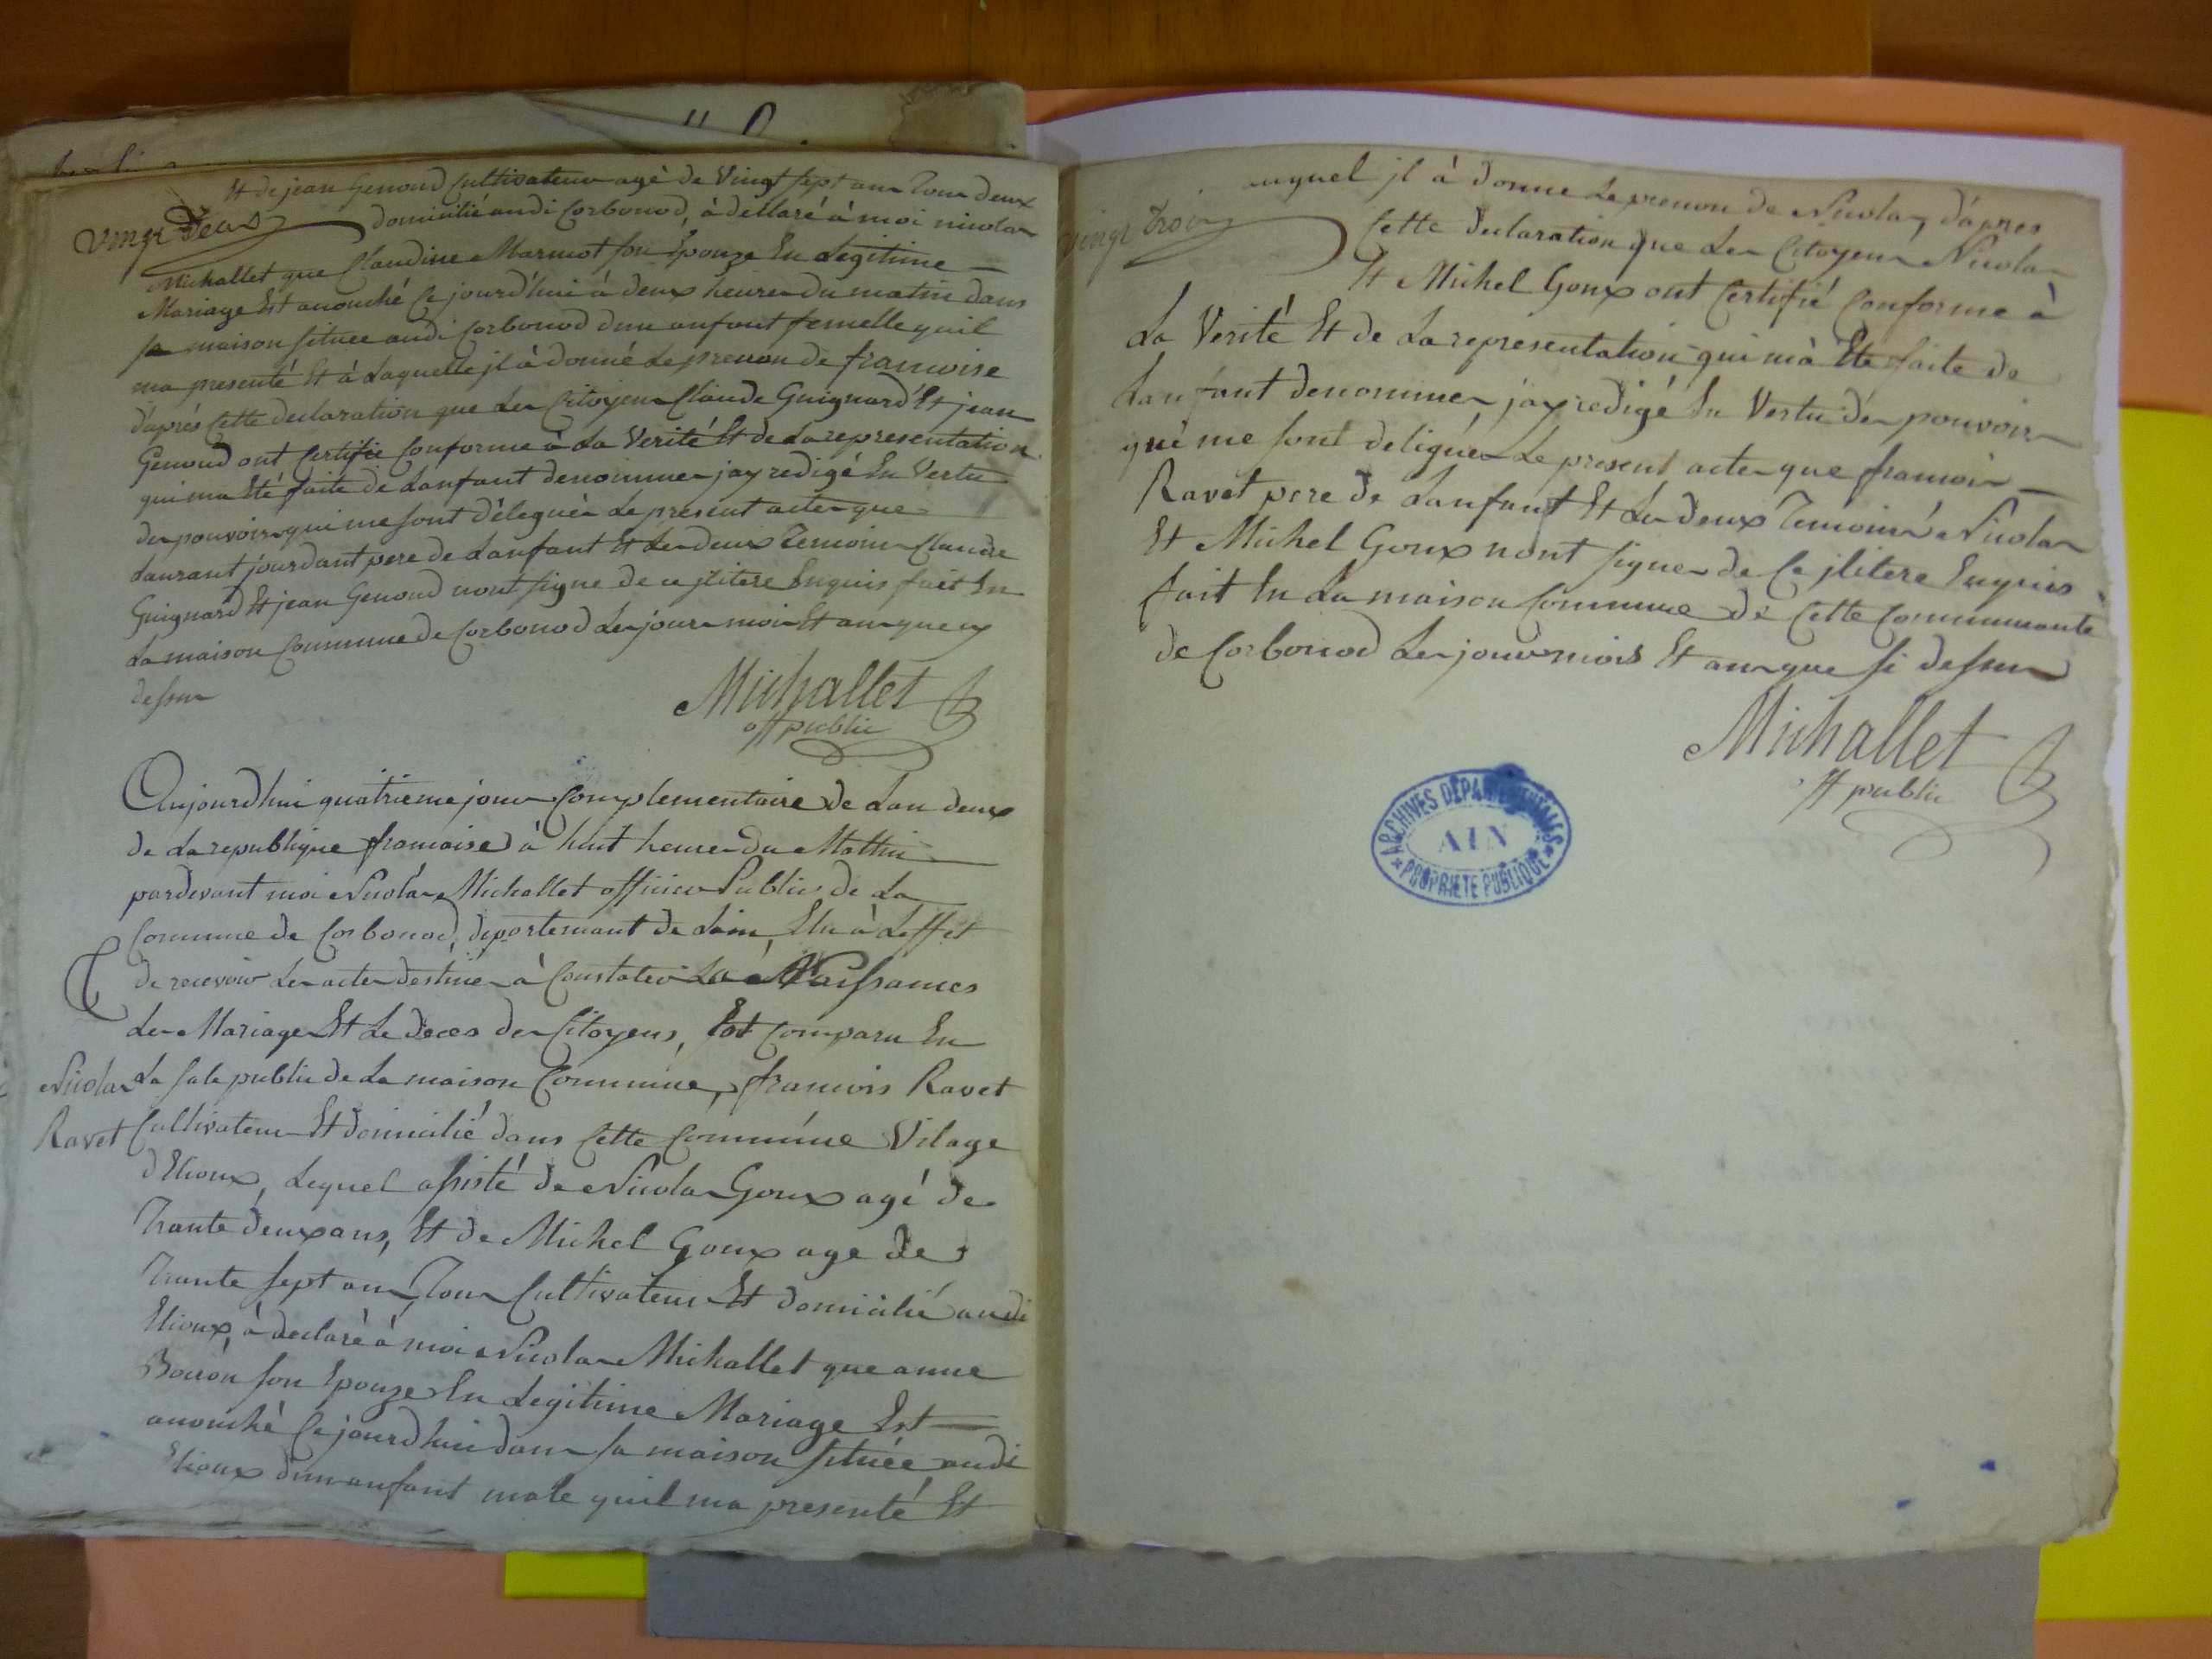 Et de jean Genoud Cultivateur agé de Vingt sept ans Tous deux
Vingt Deux
domicilié audi Corbonod, à dellaré à moi nicolas
Michallet que Claudine Marmot son Epouze En Legitime
Mariage Est acouché Ce jourd'hui à deux heures du matin dans
sa maison située audi Corbonod dun anfant femelle quil
ma presenté Et à Laquelle jl à donné Le prenon de francoise
d'aprés Cette declaration que Les Citoyens Claude Guignard Et jean
Genoud ont Certifié Conforme à La Verité Et de La representation
qui ma Eté faite de Lanfant denommer jay redigé En Vertu
des pouvoirs qui me sont délegués Le présent actes que
Laurant jourdant pere de Lanfant Et Les deux Temoins Claude
Guignard Et jean Genoud nont signe de ce jlitere Enquis fait En
La maison Commune de Corbonod Les jour mois Et an que cy
dessus
Michallet
off public
Aujourdhui quatrieme jour Complementaire de Lan deux
de La republique francaise à huit heures du Mattin
pardevant moi Nicolas Michallet officier Public de La
Commune de Corbonod, departemant de Lain, Elu à Leffet
de recevoir Les actes destiner à Constater La Naissances
Les Mariages Et Le deces des Citoyens, Est Comparu En
Nicolas
Ravet
La sale public de La maison Commune, francois Ravet
Cultivateur Et domicilié dans Cette Commune Vilage
d'Etioux, Lequel assisté de Nicolas Goux agé de
Trante deux ans, Et de Michel Goux age de
Trante sept ans Tous Cultivateur Et domicilié audi
Etioux, à declaré à moi Nicolas Michallet que anne
son Epouze En Legitime Mariage Est
acouché Ce jourdhui dans sa maison située audi
Etioux dun anfant male quil ma presenté Et
auquel jl à donne Le prenon de Nicolas, d'apres
vingt Trois
Cette declaration que Les Citoyens Nicolas
Et Michel Goux ont Certifié Conforme à
La Verité Et de La representation qui mà Ete faite de
Lanfant denommer, jay redigé En Vertu des pouvoirs
qui me sont deligués Le present actes que francois
Ravet pere de Lanfant Et Les deux Temoins Nicolas
Et Michel Goux nont signer de Ce jlitere Enquis
fait En La maison Commune de Cette Communaute
de Corbonod Les jour mois Et an que si dessus
Michallet
off public
ARCHIVES DÉPARTEMENTALES
AIN
* PROPRIETE PUBLIQUE *